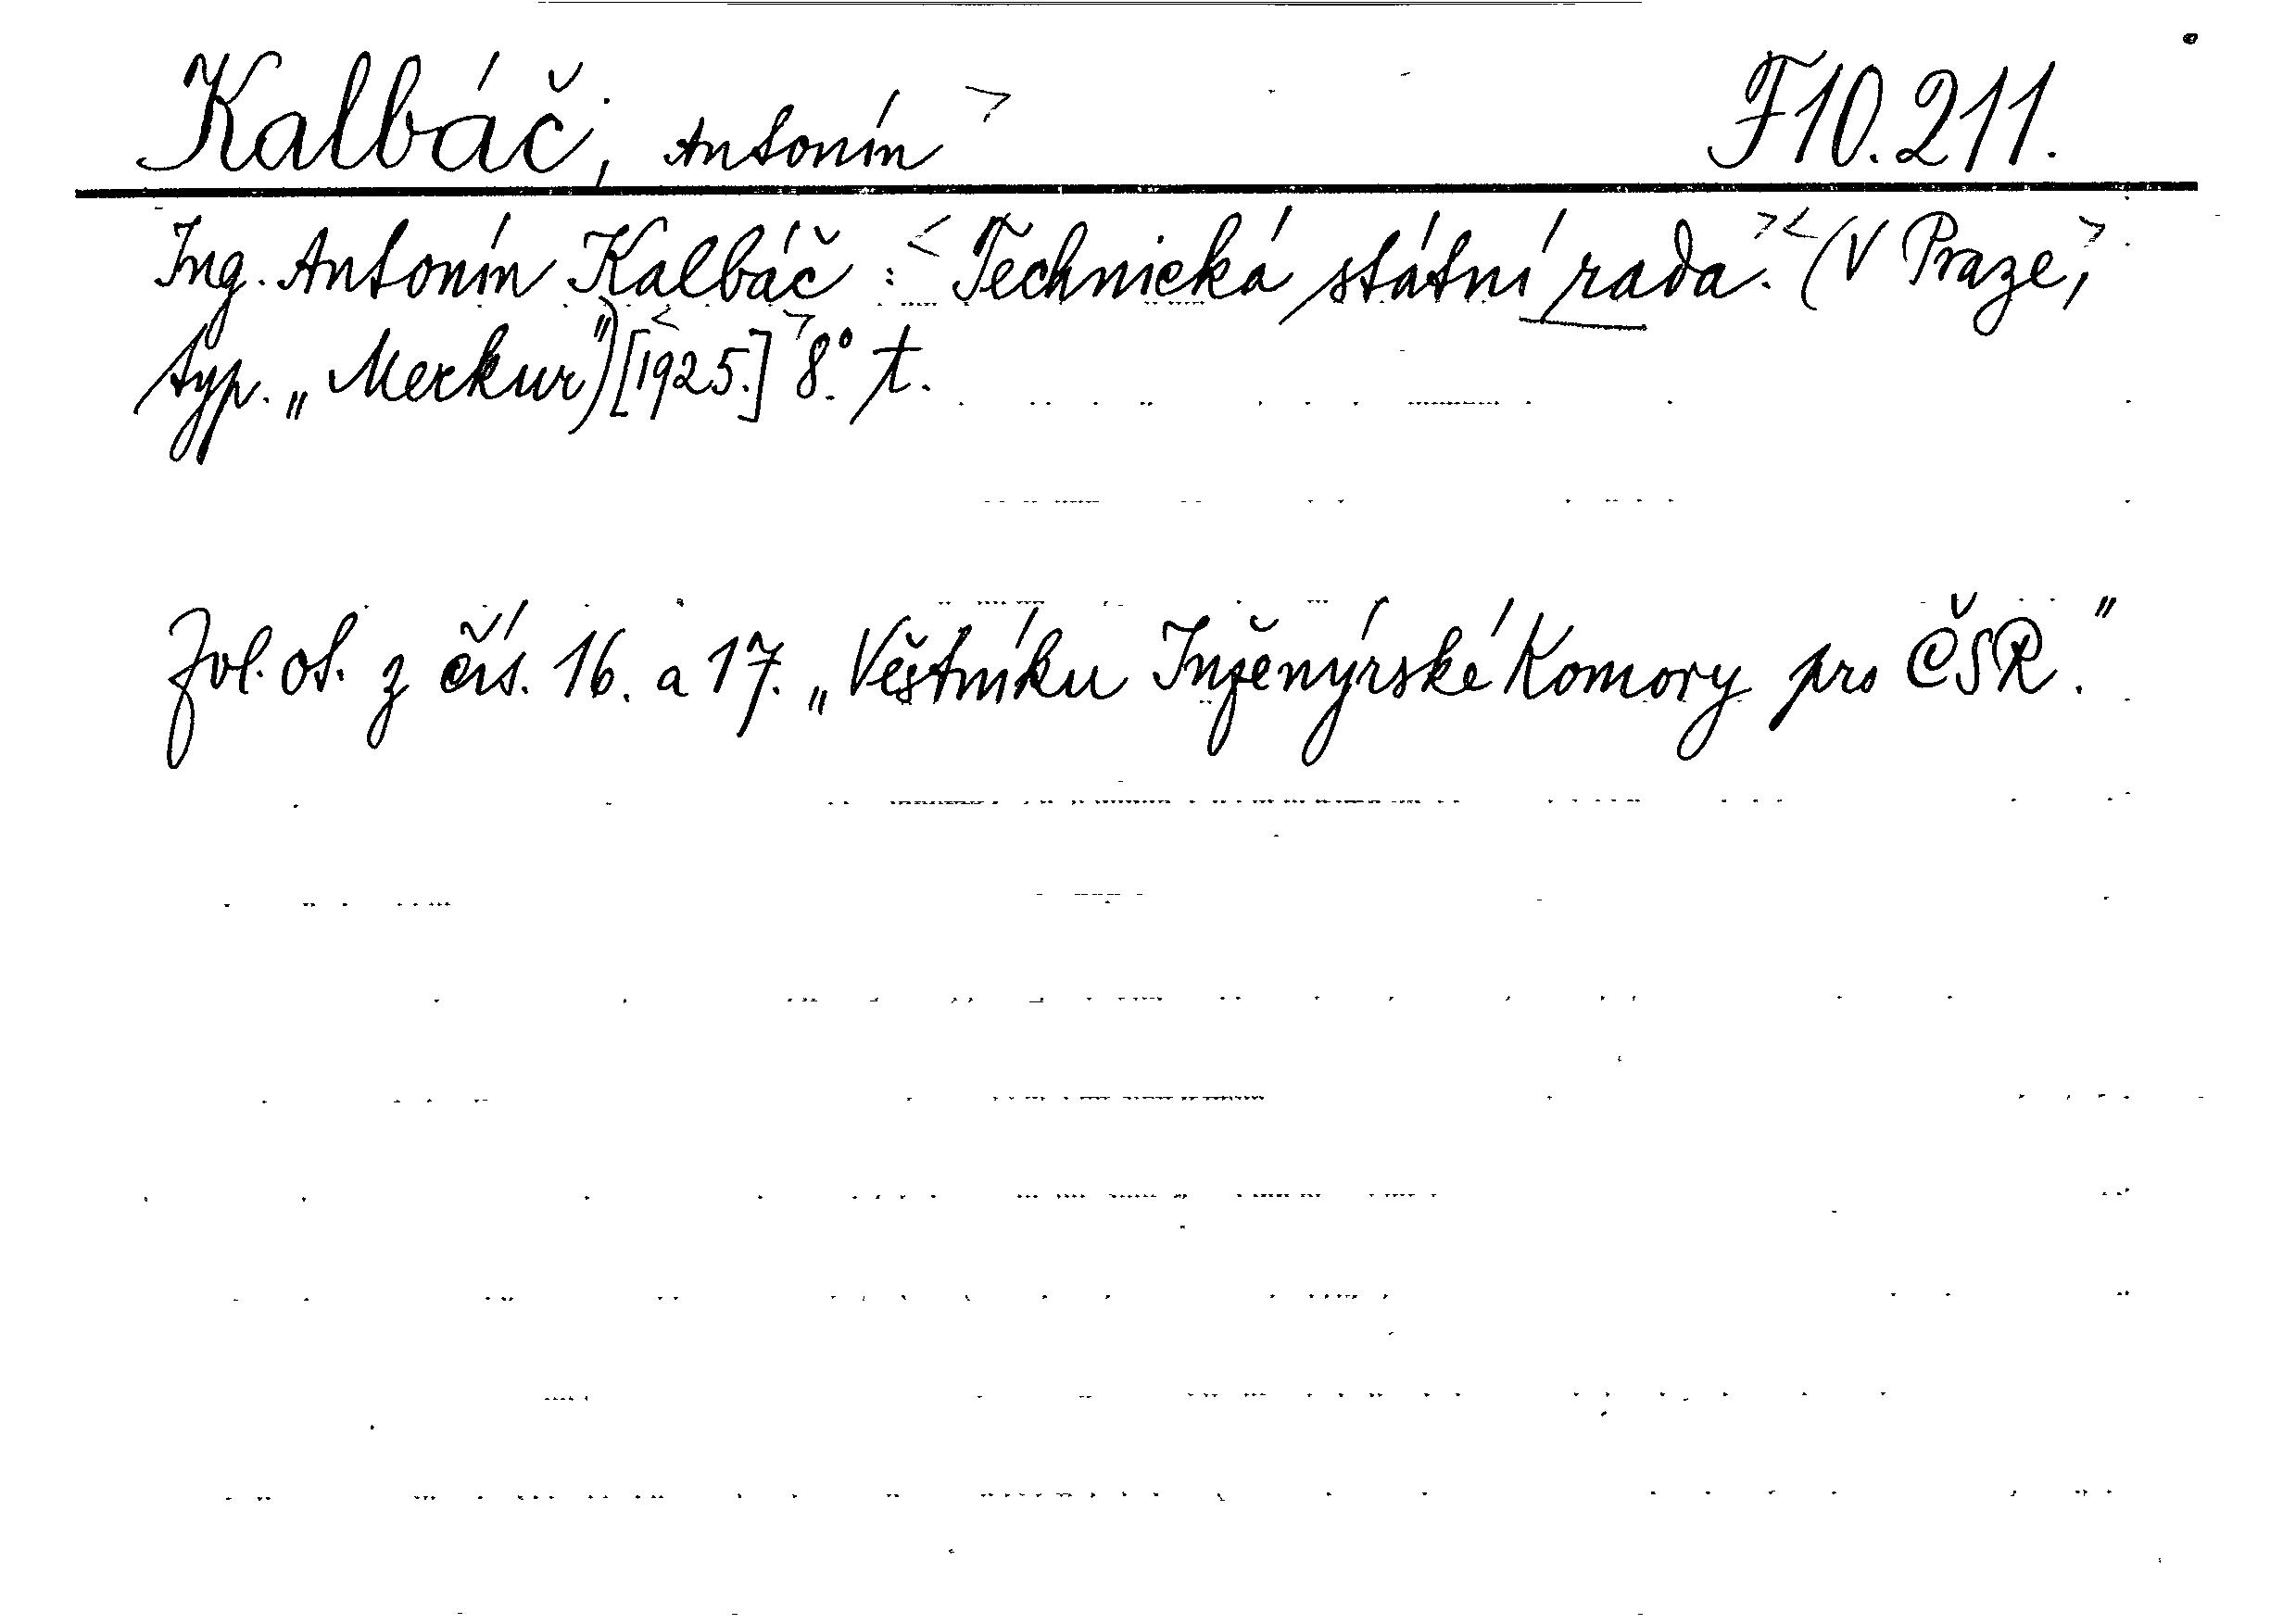 Kalbáč, Antonín > F10.211.
Ing. Antonín Kalbáč : < Technická státní rada. > < (V Praze, >
typ. „Merkur") [< 1925.] > 8.° t.
Zvl. ot. z čís. 16. a 17. „Věštníku Inženýrské Komory pro ČSR."